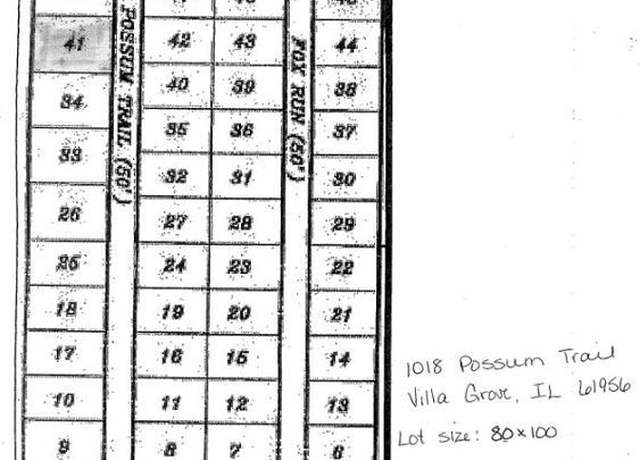 41 42 43 44
POSSUM TRAIL (50')
FOX RUN (50')
34 40 39 38
33 35 36 37
26 32 31 30
27 28 29
25 24 23 22
18 19 20 21
17 16 15 14
10 11 12 13
9 8 7 6
1018 Possum Trail
Villa Grove, IL 61956
Lot size: 80x100